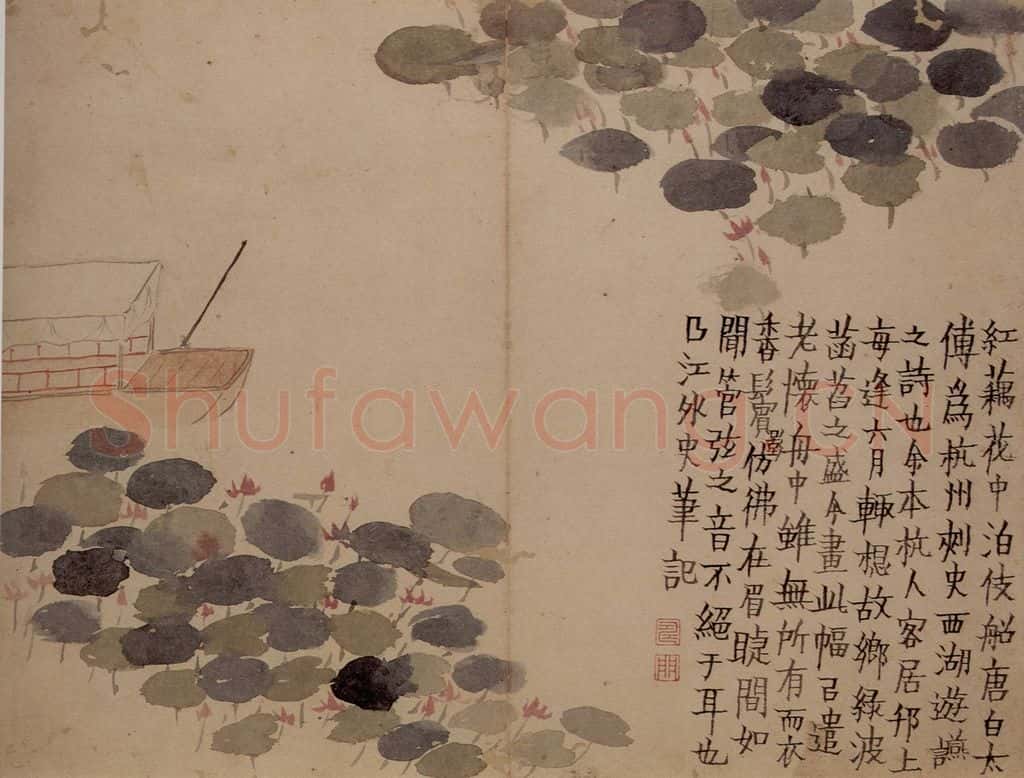 紅藕花中泊伎船唐白太
傅爲杭州刺史西湖遊讌
之詩也余本杭人客居邗上
每逢六月輙想故鄉綠波
菡萏之盛今畫此幅己遣
老懷舟中雖無所有而衣
香鬢影仿彿在眉睫間如
聞管弦之音不絕于耳也
江外史筆記
Shufawang.CN